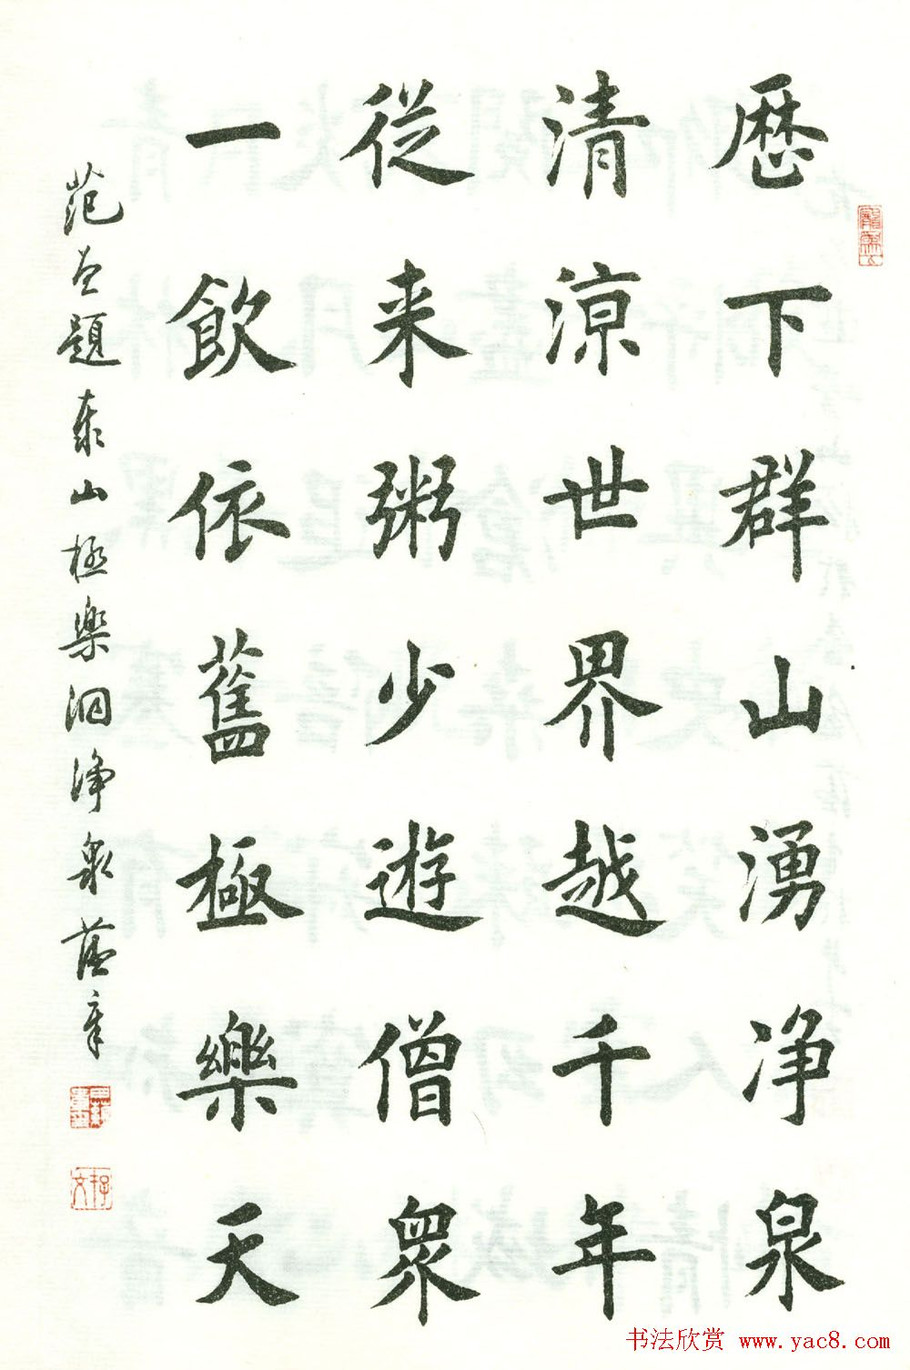 歷下群山湧净泉
清涼世界越千年
從来粥少遊僧衆
一飲依舊極樂天
范曾題泰山極樂洞净泉 蔭章
书法欣赏 www.yac8.com